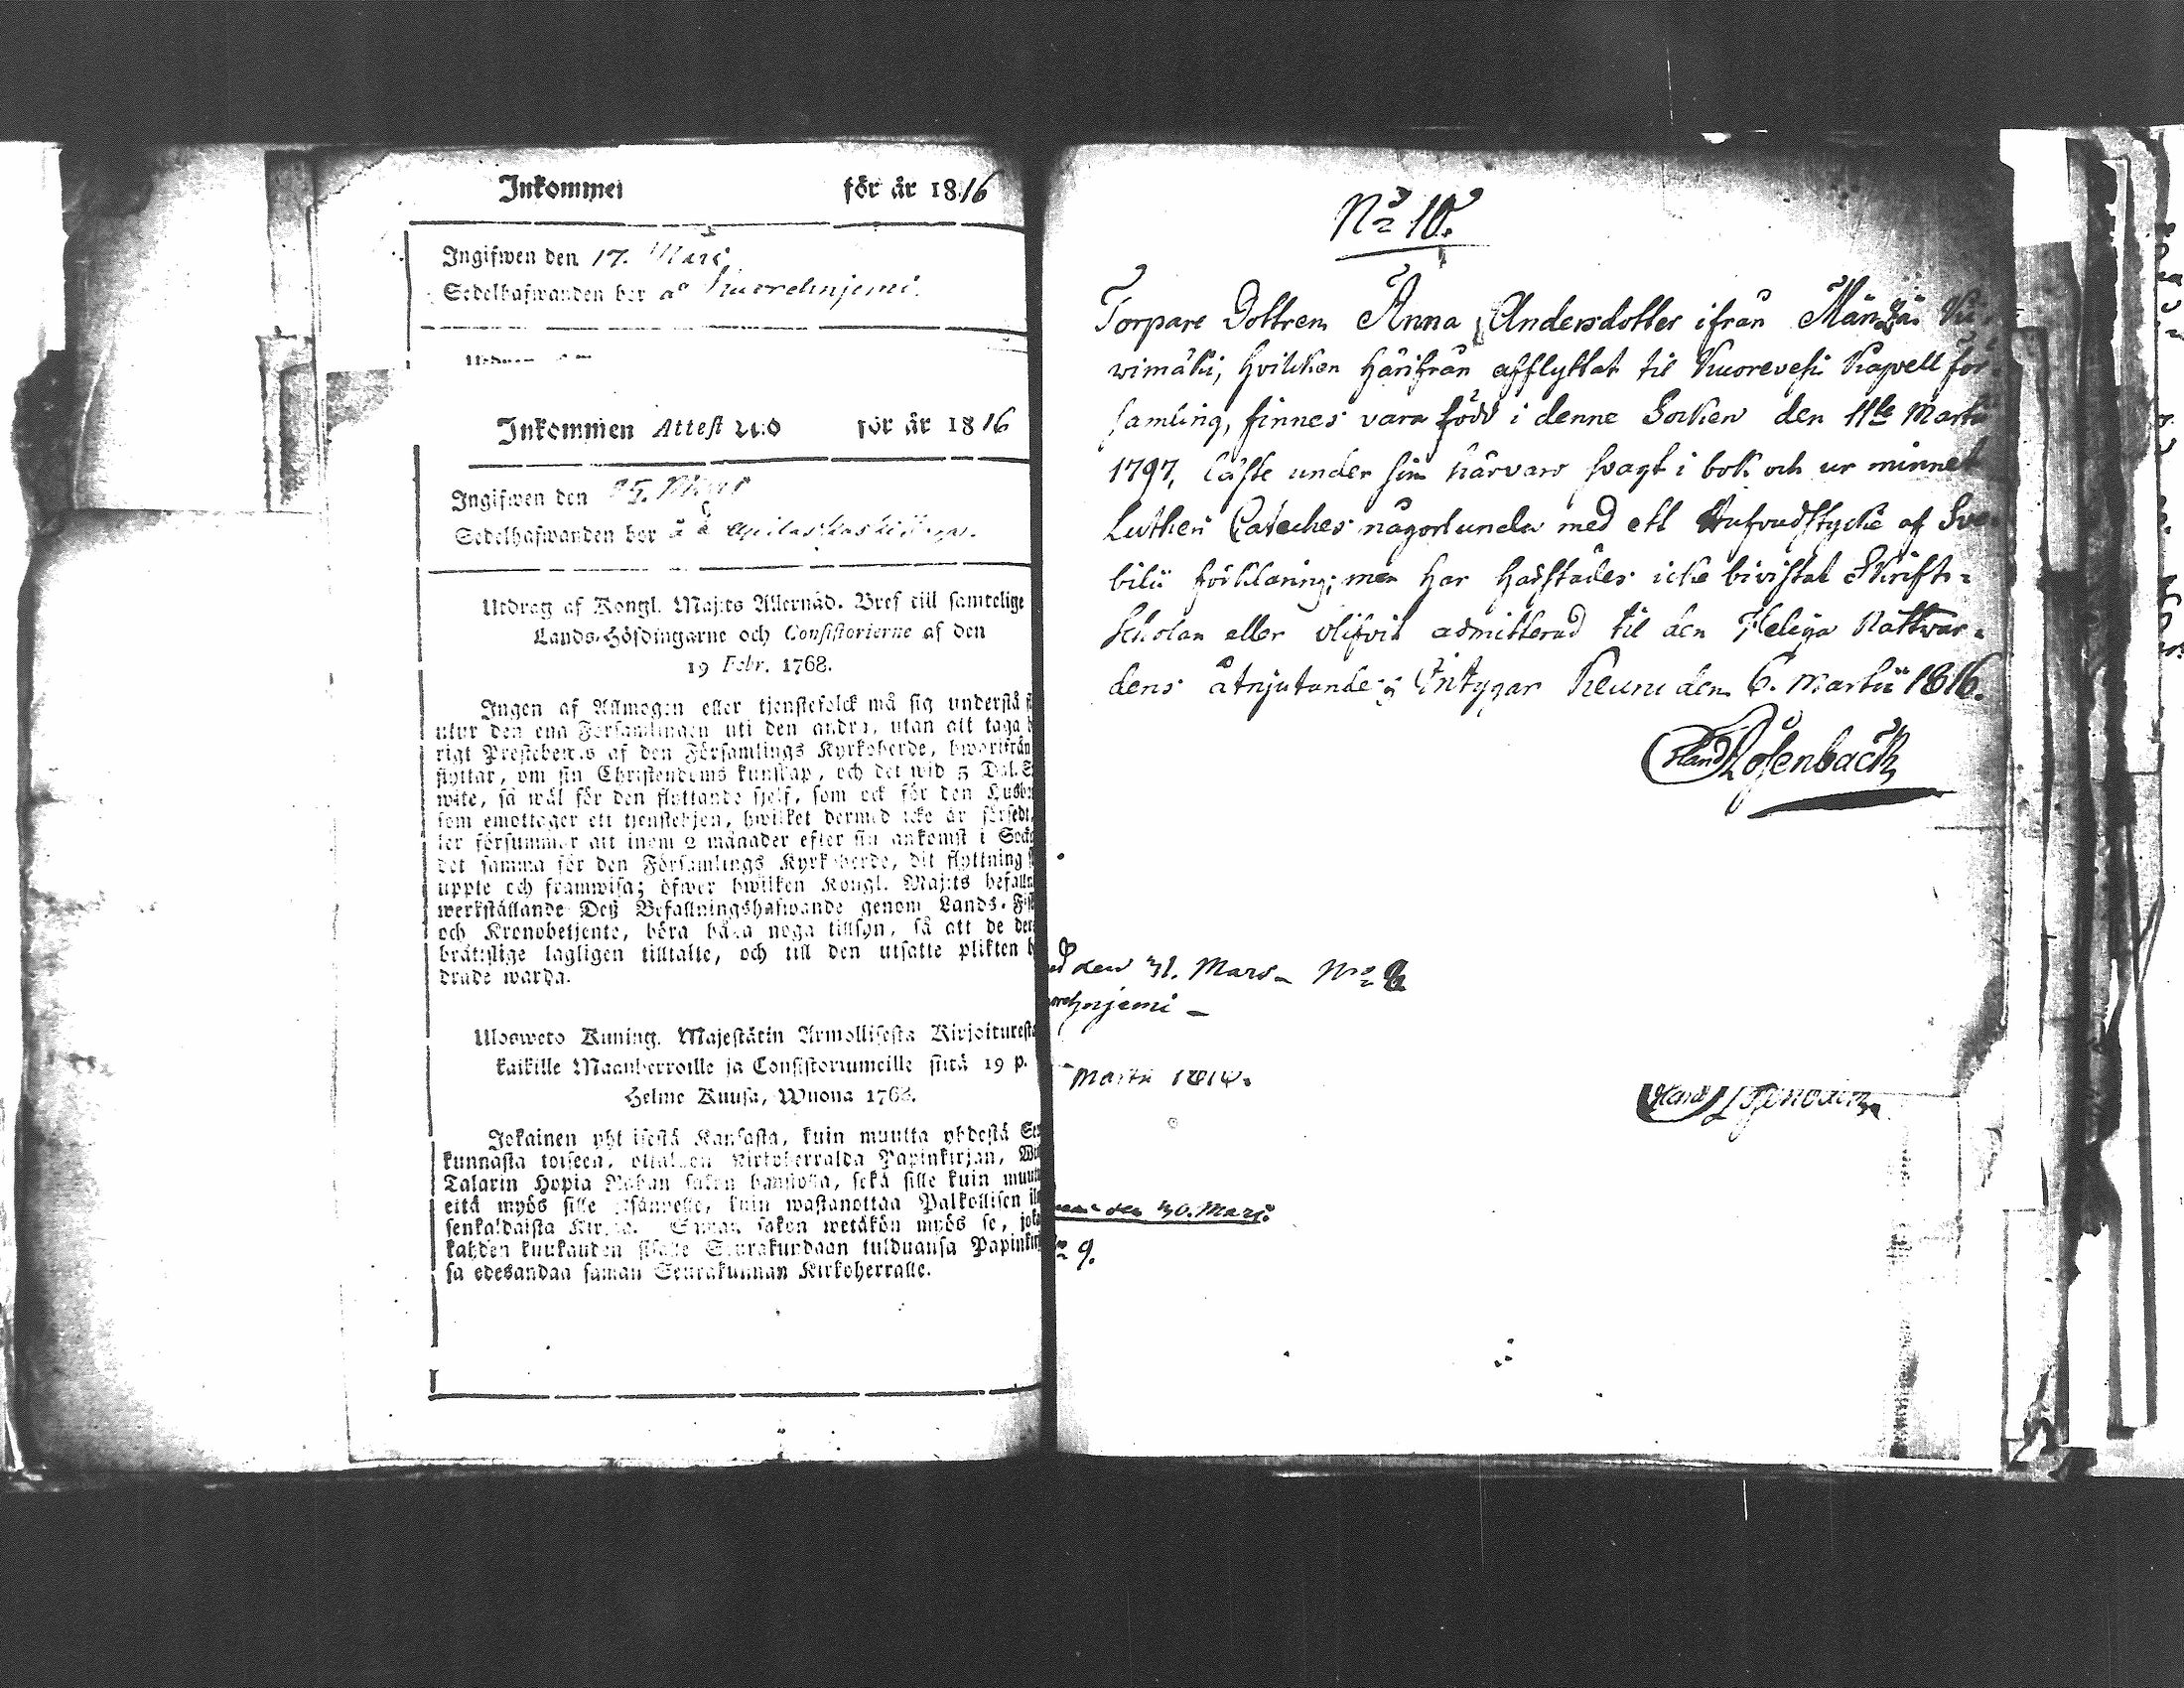 Inkommen för år 1816
Ingifwen den 17. Mars
Sedelhafwanden bor
Inkommen Attest N:o för år 1816
Ingifwen den
Sedelhafwanden bor å
Utdrag af Kongl. Maj:ts Allernåd. Bref till samtelige
Lands-Höfdingarne och Consistorierne af den
19 Febr. 1768.
Ingen af Allmogen eller tjenstefolck må sig understå
utur den ena Församlingen uti den andra, utan att taga
rigt Prestebewis af den Församlings Kyrkoherde, hworifrån
flyttar, om sin Christendoms kunskap, och det wid 5 Dal. S
wite, så wäl för den flyttande sjelf, som ock för den Husbo
som emottager ett tjenstehjon, hwilket dermed icke är försedt,
ler försummar att inom 2 månader efter sin ankomst i Sock
det samma för den Församlings Kyrkoherde, dit flyttning
uppte och framwisa; öfwer hwilken Kongl. Maj:ts befalln
werkställande Deß Befallningshafwande genom Lands-Fis
och Kronobetjente, böra hafwa noga tillsyn, så att de der
brätslige lagligen tilltalte, och till den utsatte plikten
drade warda.
Ulosweto Kuning. Majestätin Armollisesta Kirjoituresta
kaikille Maanherroille ja Consistoriumeille siitä 19 p.
Helme Kuusa, Wuona 1768.
Jokainen yhteisestä Kansasta, kuin muutta yhdestä Seu
kunnasta toiseen, ottakoon Kirkoherralda Papinkirjan, Wii
Talarin Hopia Rahan sakon haastolla, sekä sille kuin muutt
että myös sille isännelle, kuin wastanottaa Palkollisen il
senkaldaista Kirjaa. Saman sakon wetäkön myös se, joka
kahden kuukauden sisälle Seurakundaan tulduansa Papinkirj
sa edesandaa saman Seurakunnan Kirkoherralle.
No 10.
Torpare Dottren Anna Andersdotter ifrån
wimäki, hvilcken härifrån afflyttat til Kuorevesi Kapell för-
samling, finnes vara född i denne Socken den 11te Martii
1797, läste under sin härvaro svagt i bok och ur minnet
Lutheri Cateches någorlunda med ett Hufvudstycke af Sve-
bilii förklaring; men har härstädes icke bivistat Skrift-
Scholan eller blifvit admitterad til den Heliga Nattvar-
dens åtnjutande; Intygar Keuru den 6. Martii 1816.
Rosenback
den 31. Mars No
Martii 1816.
den 30. Mars.
9.